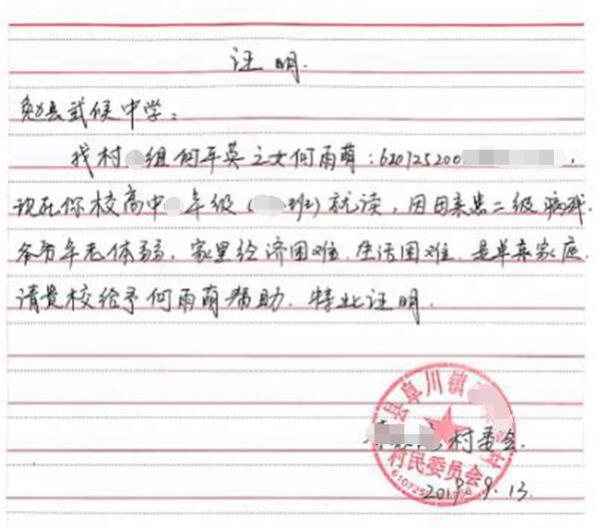 证明.
勉县武侯中学:
我村 组何平英之女何雨萌:612725200
现在你校高中 年级( 班)就读,因母亲患二级病残
爷爷年老体弱,家里经济困难.生活困难.是单亲家庭.
请贵校给予何雨萌帮助.特此证明.
县阜川镇
村委会.
村民委员会
2019.9.13.